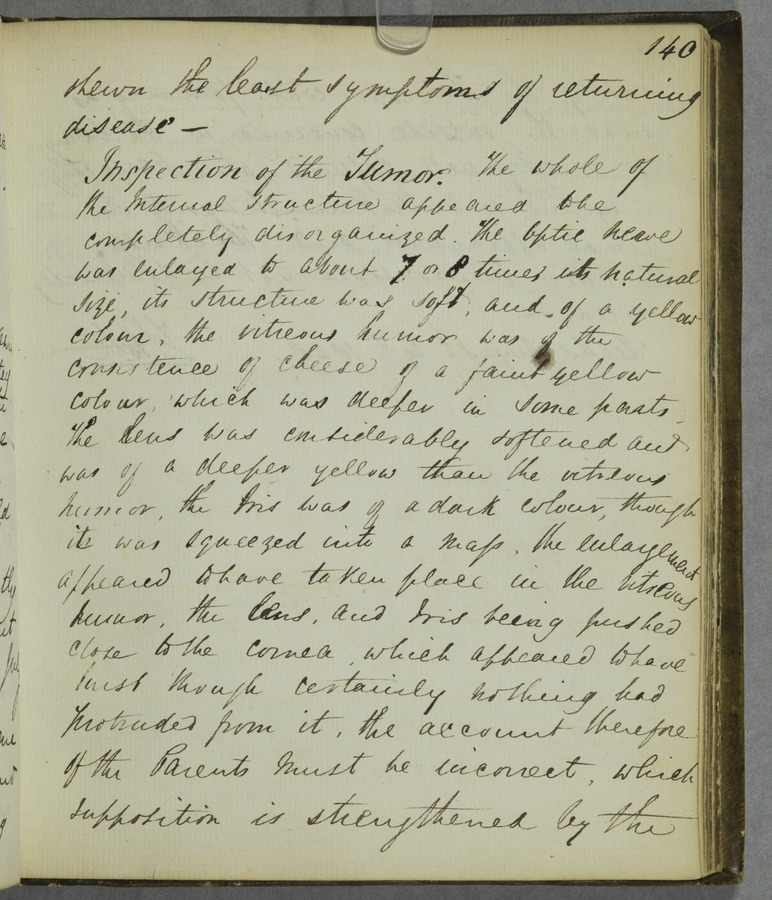 140
shewn the least symptoms of returning
disease —
Inspection of the Tumor. The whole of
the Internal structure appeared to be
completely disorganized. The Optic nerve
was enlayed to about 7 or 8 times its natural
size, its structure was soft, and of a yellow
colour, the vitreous humor was of the
consistence of cheese of a faint yellow
colour, which was deeper in some parts.
The lens was considerably softened and
was of a deeper yellow than the vitreous
humor, the Iris was of a dark colour, though
its was squeezed into a mass, the enlargement
appeared to have taken place in the vitreous
humor, the lens, and Iris being pushed
close to the cornea, which appeared to have
burst though certainly nothing had
protruded from it, the account therefore
of the Parents must be incorrect, which
supposition is strengthened by the